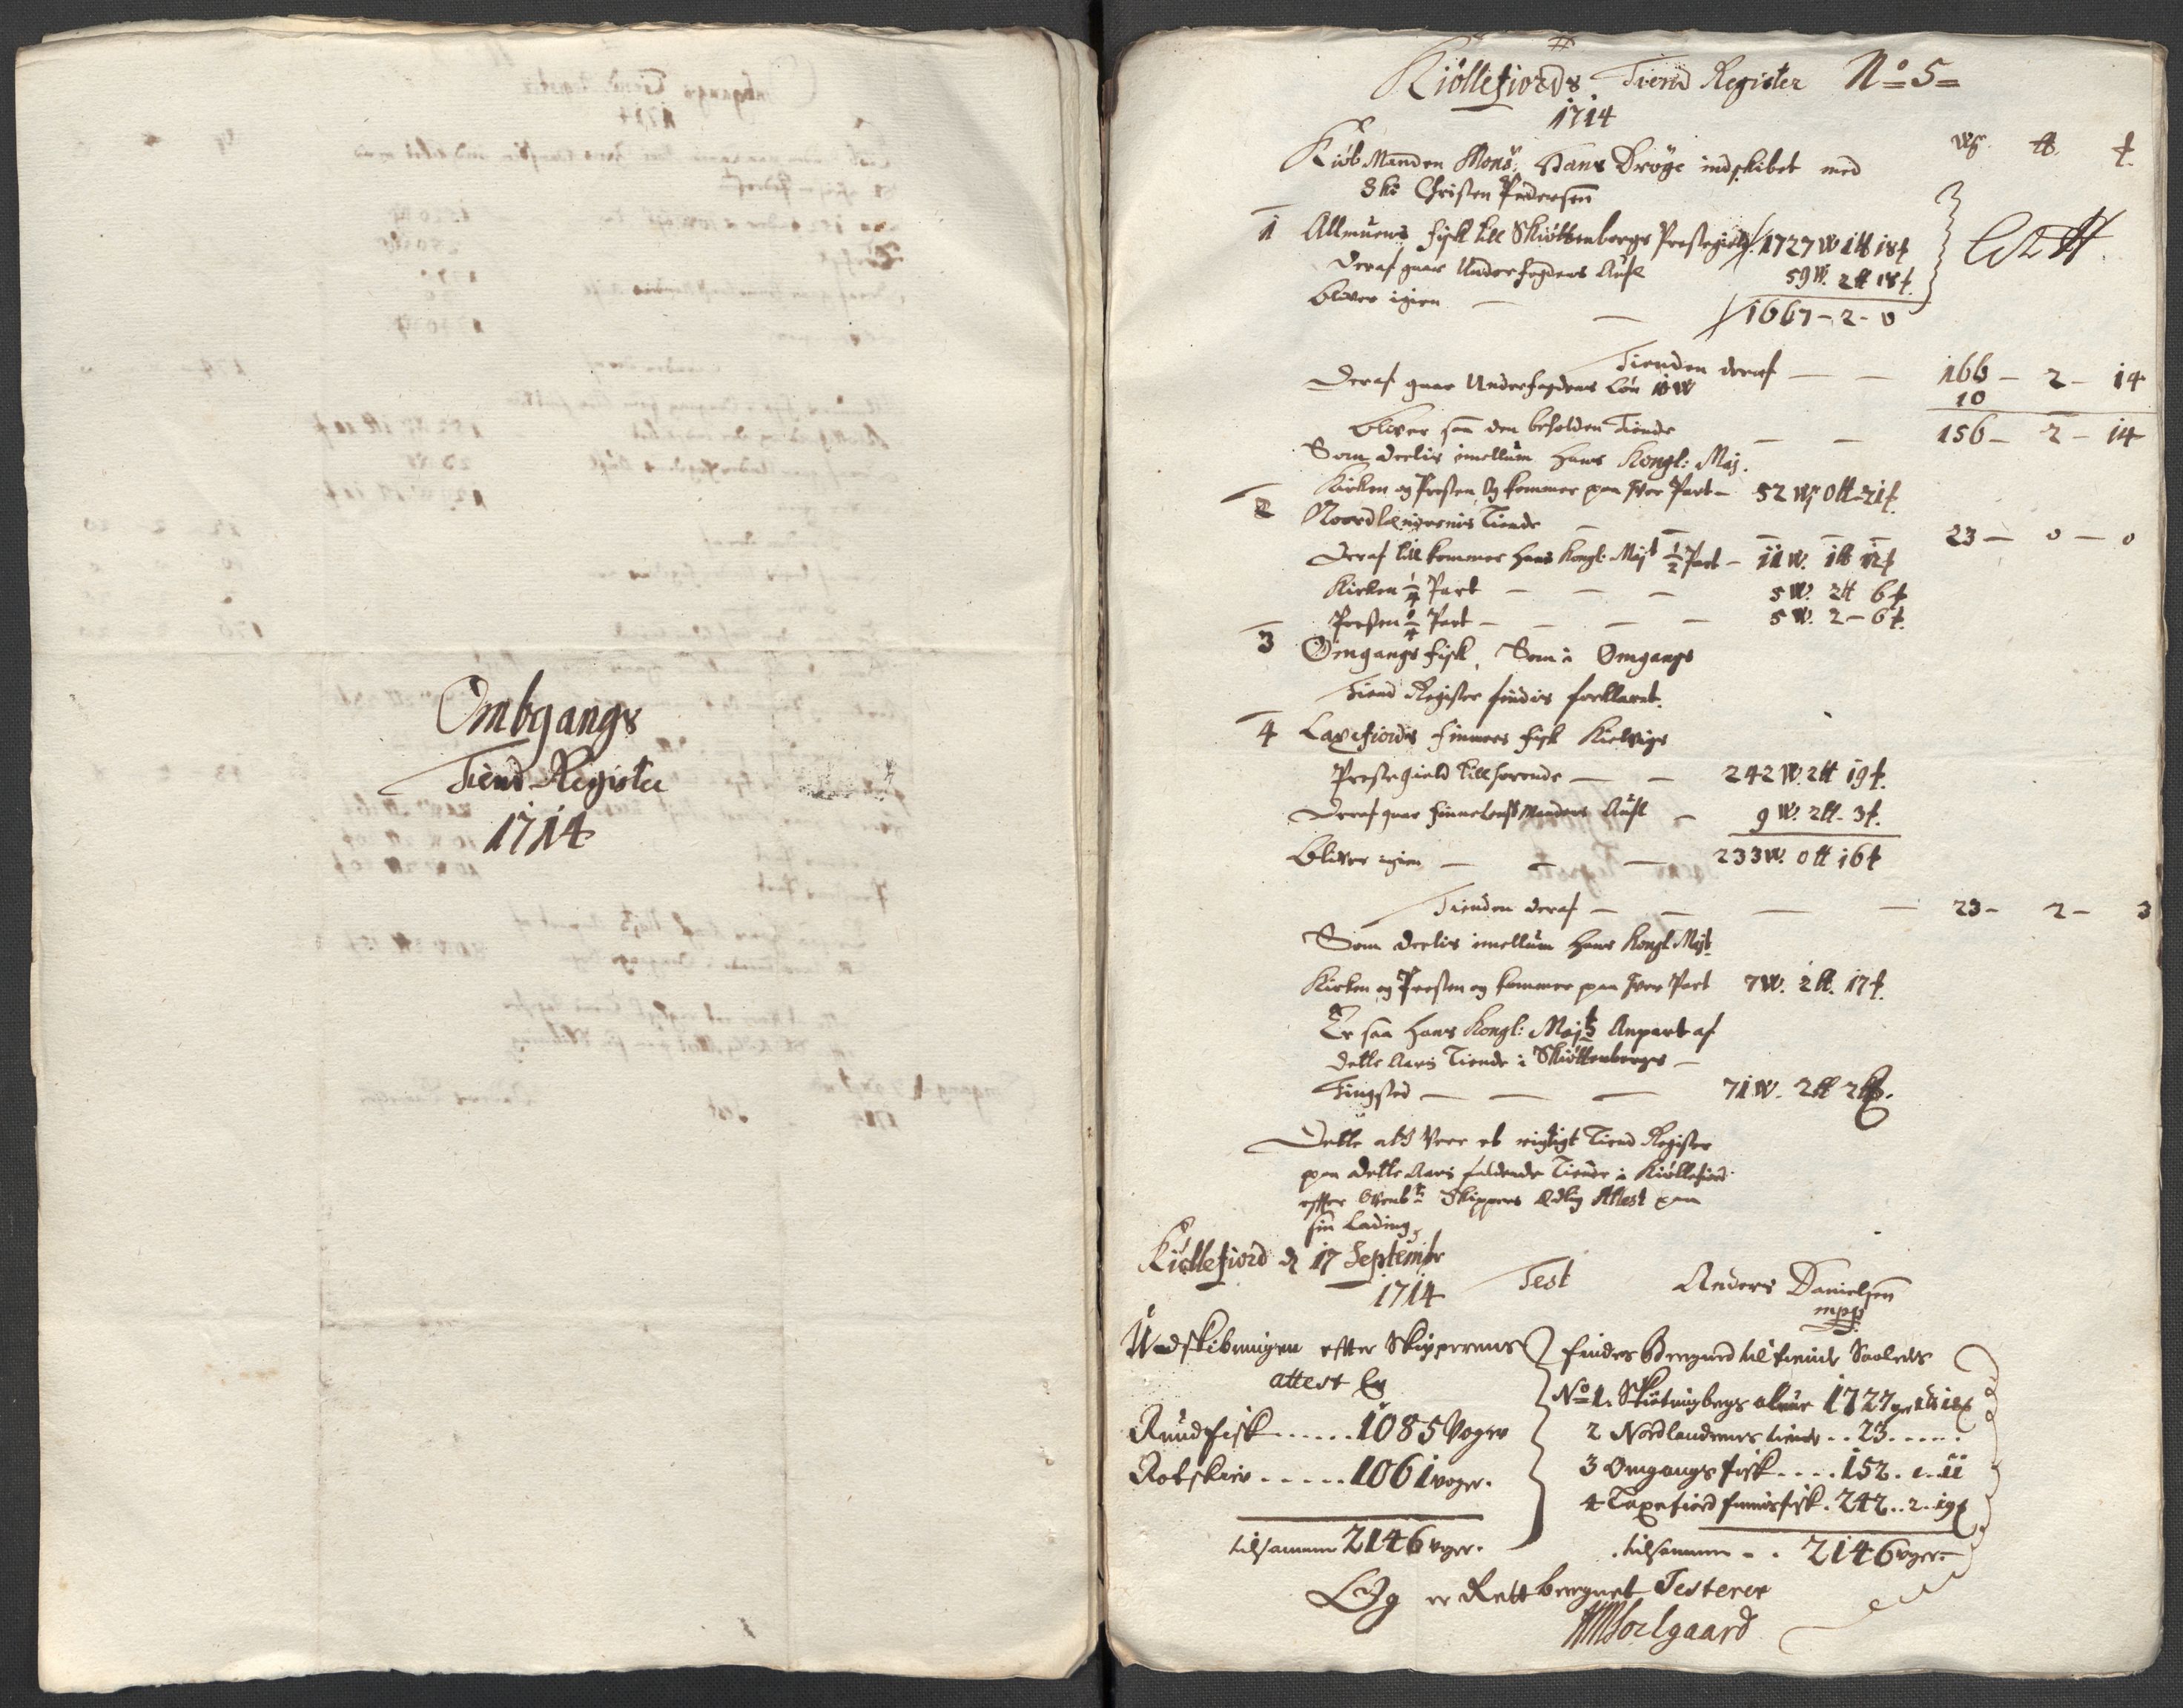 Ombgangs
Tiend Register
1714
Kiöllefiords Tiend Register No 5
1714
Kiöb Manden Mons: Hans Dröge indskibet med
Christen Pedersen
W ℔
1 Allmuens fisk till Skiöttenbergs Prestegield 1727 W 1 ℔ 18
Deraf gaar Underfogdens Aufl 59 W. 2 ℔ 18
bliver igien 1667 - 2 - 0
Tienden deraf 166 - 2 - 14
Deraf gaar Underfogdens Lön 10 W 10
bliver saa den beholden Tiende 156 - 2 - 14
Som deelis imellum Hans Kongl: Maj.
Kirken og Presten Og kommer paa hver Part - 52 W 0 ℔ 21
2 Noordlænderenis Tiende 23 - 0 - 0
Deraf till kommer Hans Kongl: Majt ½ Part - 11 W. 1 ℔ 12
Kirken ¼ Part 5 W. 2 ℔ 6
Presten ¼ Part 5 W. 2 - 6
3 Omgangs fisk, Som i Omgangs
Tiend Register findis forklaret.
4 Laxefiords finners fisk Kielvigs
Prestegield tillhörende 242 W. 2 ℔ 19
Deraf gaar finnelensMandens Aufl 9 W. 2 ℔ 3
bliver igien 233 W. 0 ℔ 16
Tienden deraf 23 - 2 - 3
Som deelis imellum Hans Kongl Majt
Kirken og Presten og kommer paa hver Part 7 W. 2 ℔. 17
Er saa Hans Kongl: Majts Anpart af
dette Aars Tiende i Skiöttenbergs
Tingsted 71 W. 2 ℔ 2
Dette at Vere et rigtigt Tiend Register
paa dette Aars faldende Tiende i Kiöllefiord
effter Skippers Edlig Attest paa
sin Lading,
Kiöllefiord d 17 Septembr
1714 Test Anders Danielsen
mpp
Udskibningen effter Skipperens
attest Er
Rundfisk ...... 1085 Voger
Rotskier ..... 1061 voger.
tilsammen 2146 vger.
findes Beregned til tiende Saaledes
No 1. Skiötningbergs almue 1727
2 Nordlandenes tiende .. 23 .....
3 Omgangs fisk .... 152. 1. 11
4 Laxefiord finnisfisk . 242 .. 2. 19
tilsammen .. 2146 vger
Og er Rett beregnet Testerer
Soelgaard